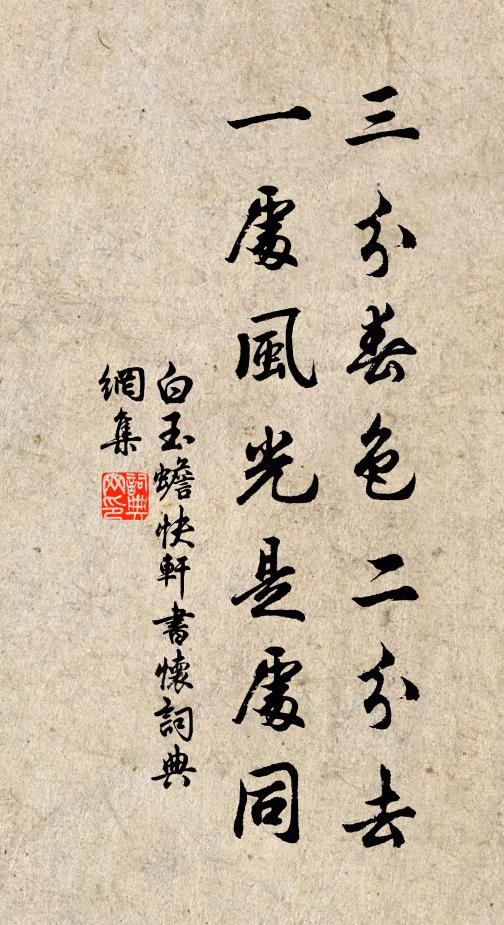 三分春色二分去
一處風光是處同
白玉蟾快軒書懷詞典
網集
詞典網印